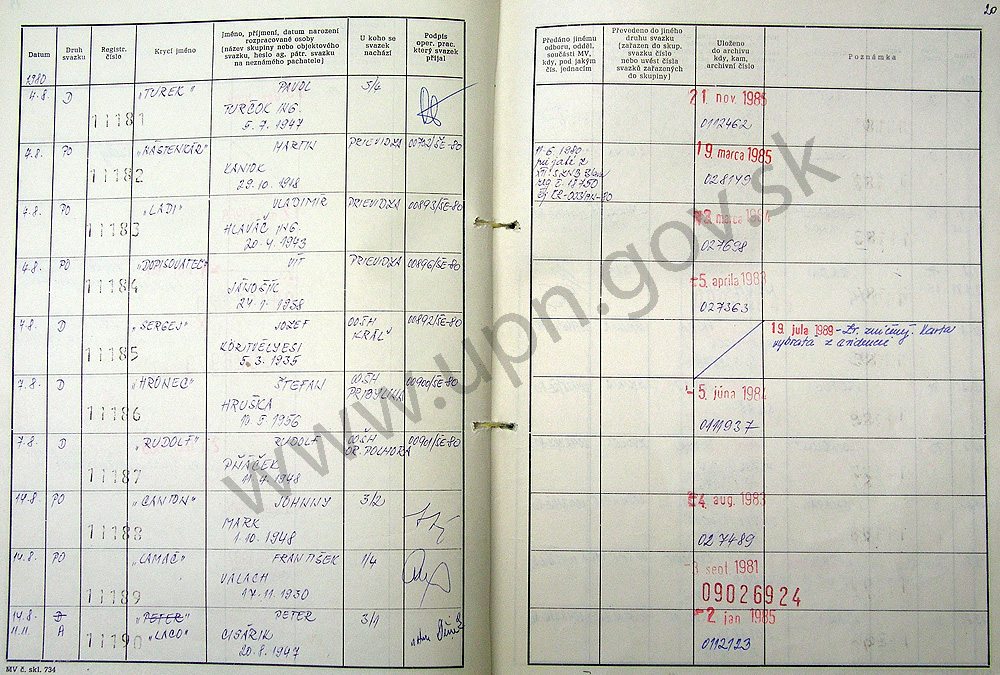 20
Datum
Druh svazku
Registr. číslo
Krycí jméno
Jméno, příjmení, datum narození
rozpracované osoby
(název skupiny nebo objektového
svazku, heslo ag. pátr. svazku
na neznámého pachatele)
U koho se
svazek
nachází
Podpis
oper. prac.
který svazek
přijal
Předáno jinému
odboru, odděl.
součásti MV,
kdy, pod jakým
čís. jednacím
Převedeno do jiného
druhu svazku
(zařazen do skup.
svazku číslo
nebo uvést čísla
svazků zařazených
do skupiny)
Uloženo
do archivu
kdy, kam,
archivní číslo
Poznámka
1980
4.8. D 11181 „TUREK" PAVOL 3/4
TURČOK ING.
5.7.1947
21 nov. 1985
0112462
7.8. PO 11182 „NÁSTENKÁR" MARTIN PRIEVIDZA 00732/ŠE-80
KANIOK
29.10.1918
11.6.1980
19 marca 1985
028179
7.8. PO 11183 „LADI" VLADIMIR PRIEVIDZA 00893/ŠE-80
HLAVÁČ ING.
20.4.1943
027698
4.8. PO 11184 „DOPISOVATEĽ" VÍT PRIEVIDZA 00896/ŠE-80
JÁNOŠÍK
-5. apríla 1983
027363
7.8. D 11185 „SERGEJ" JOZEF OOŠH KRÁĽ 00892/ŠE-80
KÖRTVÉLYESI
5.3.1935
19 jula 1989 - Zv. zničený. Karta
vybratá z evidencie
7.8. D 11186 „HRONEC" ŠTEFAN OOŠH PRIBYLINA 00900/ŠE-80
HRUŠKA
10.5.1956
-5. júna 1984
0111937
7.8. D 11187 „RUDOLF" RUDOLF OOŠH OR. POLHORA 00901/ŠE-80
PŇÁČEK
11.4.1948
14.8. PO 11188 „CANTON" JOHNNY 3/2
MARK
1.10.1948
-4. aug. 1983
027489
14.8. PO 11189 „LAMAČ" FRANTIŠEK 1/4
VALACH
17.11.1930
-3 sept 1981
09026924
14.8. D 11190 „PETER" PETER 3/1
11.11. A „LACO" CISÁRIK
20.8.1947
-2 jan 1985
0112123
MV č. skl. 734
www.upn.gov.sk